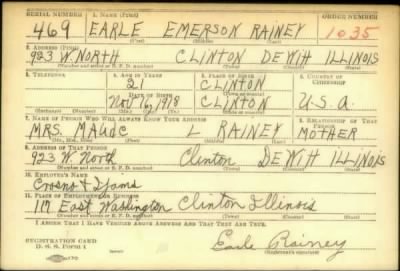 SERIAL NUMBER 1. NAME (Print) ORDER NUMBER
469 EARLE EMERSON RAINEY 1035
(First) (Middle) (Last)
2. ADDRESS (Print)
923 W. NORTH CLINTON DEWITT ILLINOIS
(Number and street or R. F. D. number) (Town) (County) (State)
3. TELEPHONE 4. AGE IN YEARS 5. PLACE OF BIRTH 6. COUNTRY OF CITIZENSHIP
21 CLINTON
DATE OF BIRTH (Town or county)
Nov 16, 1918 CLINTON U.S.A.
(Exchange) (Number) (Mo.) (Day) (Yr.) (State or country)
7. NAME OF PERSON WHO WILL ALWAYS KNOW YOUR ADDRESS 8. RELATIONSHIP OF THAT PERSON
MRS. MAUDE L RAINEY MOTHER
(Mr., Mrs., Miss) (First) (Middle) (Last)
9. ADDRESS OF THAT PERSON
923 W. North Clinton DEWITT ILLINOIS
(Number and street or R. F. D. number) (Town) (County) (State)
10. EMPLOYER'S NAME
11. PLACE OF EMPLOYMENT OR BUSINESS
117 East Washington Clinton Illinois
(Number and street or R. F. D. number) (Town) (County) (State)
I AFFIRM THAT I HAVE VERIFIED ABOVE ANSWERS AND THAT THEY ARE TRUE.
REGISTRATION CARD
D. S. S. Form 1
Earle Rainey
(Registrant's signature)